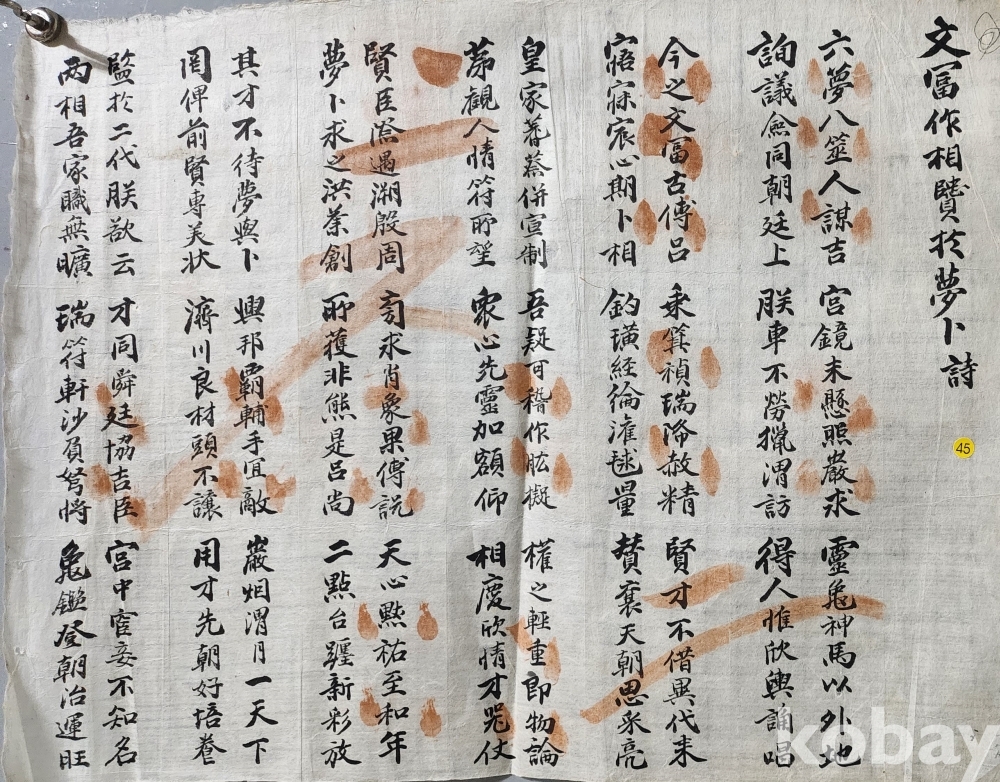 文冨作相賢於夢卜詩
六夢八筮人謀吉
詢議僉同朝廷上
宮鏡未懸照巖求
朕車不勞獵渭訪
靈龜神馬以外地
得人惟欣輿誦唱
今之文冨古傅呂
寤寐宸心期卜相
乘箕禎瑞降赫精
釣璜経綸量
賢才不借異代来
賛襄天朝思采亮
皇家蓍蔡併宣制
第觀人情符所望
吾疑可稽作肱擬
衆心先靈加額仰
權之輕重即物論
相慶欣情才仗
賢臣際遇溯殷周
夢卜求之洪業創
旁求肖象果傅説
所獲非熊是呂尚
天心點祐至和年
二點台躔新彩放
其才不待夢與卜
罔俾前賢專美状
興邦霸輔手宜敵
濟川良材頭不讓
巖烟渭月一天下
用才先朝好培養
監於二代朕欲云
兩相吾家職無曠
才同舜廷協吉臣
瑞符軒沙負弩將
宮中宦妾不知名
龜鑑登朝治運旺
45
kobay